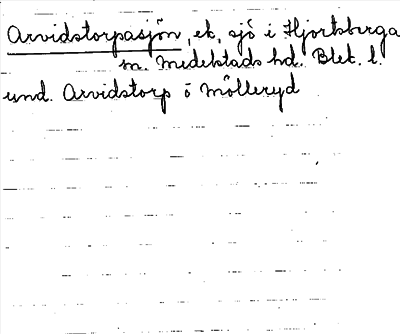 Arvidstorpasjön, ek, sjö i Hjortsberga
sn. Medelstads hd. Blek. l.
und. Arvidstorp ö Mölleryd